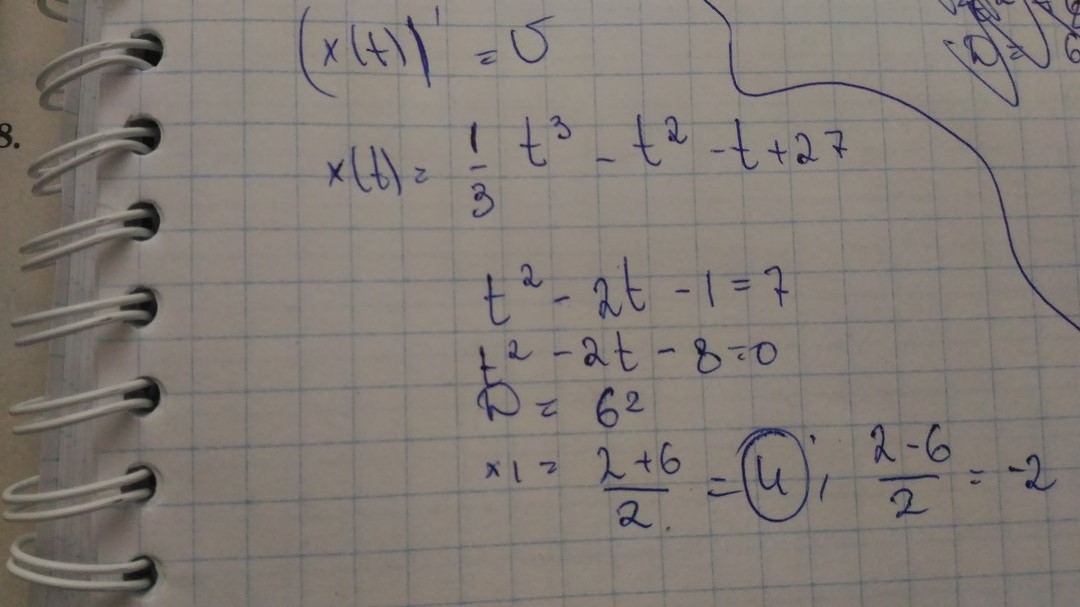 (x(t))' = υ
8.
x(t) = 1/3 t³ - t² - t + 27
t² - 2t - 1 = 7
t² - 2t - 8 = 0
D = 6²
x1 = (2+6)/2 = 4; (2-6)/2 = -2